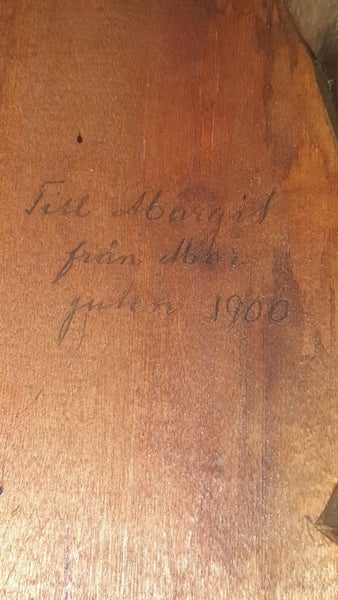 Till Margit
från Mor
julen 1900